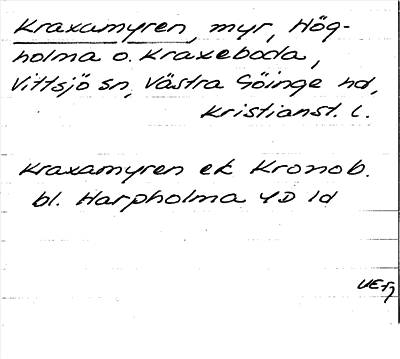 Kraxamyren, myr, Hög-
holma o. Kraxeboda,
Vittsjö sn, Västra Göinge hd,
Kristianst. l.
Kraxamyren ek Kronob.
bl. Harpholma 4D 1d